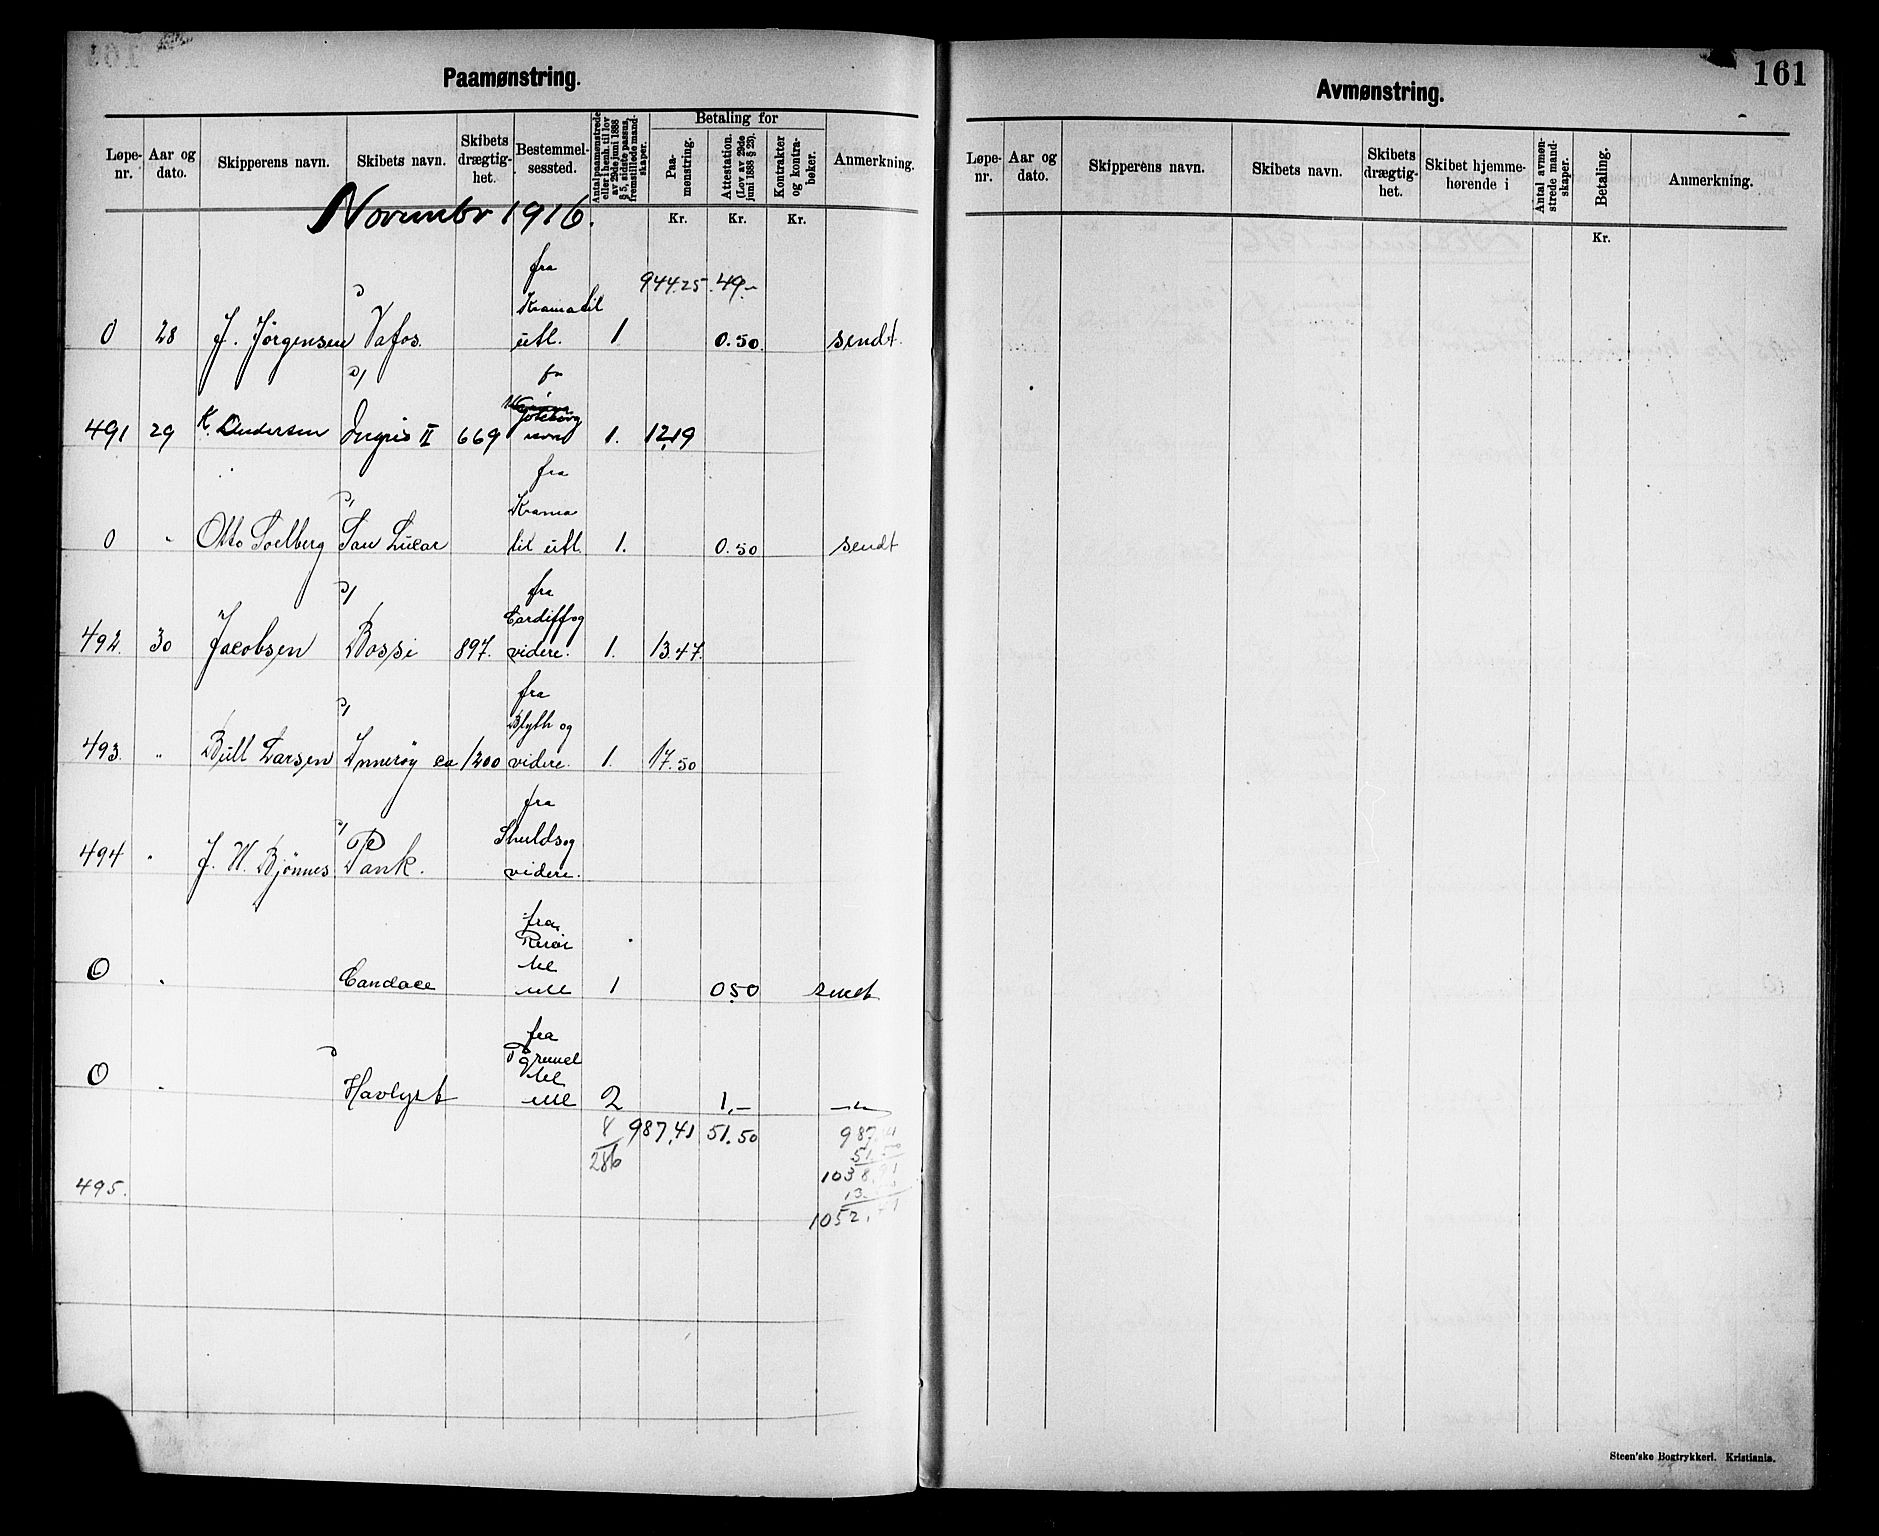 Paamønstring.
Løpe-nr.
Aar og dato.
Skipperens navn.
Skibets navn.
Skibets drægtig-het.
Bestemmel-sessted.
Antal paamønstrede eller i henh. til lov av 29de juni 1888 § 5, sidste passus, fremstillede mand-skaper.
Betaling for
Paa-mønstring.
Attestation. (Lov av 29de juni 1888 § 23).
Kontrakter og kontra-bøker.
Anmerkning.
November 1916.
Kr. Kr. Kr.
944.25 49.-
fra
Krama til
0 28 J. Jørgensen Vafos. utl. 1. 0.50 sendt.
Göteborg
491 29 K. Andersen Ingris II 669 1. 12.19
fra
Krama
0 " Otto Solberg San Lucar til utl. 1. 0.50 sendt
fra
Cardiff og
492. 30 Jacobsen Bossi 897. videre. 1. 13.47.
fra
Blyth og
493. " Bull Larsen Innerøy ca 1200 videre. 1. 17.50
fra
Shulds og
494 " J. W. Bjönnes Pank. videre.
fra
Risör
til
0 " Candace utl 1 0.50 sendt
fra
til
0 " Havlyst utl 2 1,-
8 987,41 51.50 987,41
286 51.50
1038,91
495.
1052,41
Avmønstring.
161
Løpe-nr.
Aar og dato.
Skipperens navn.
Skibets navn.
Skibets drægtig-het.
Skibet hjemme-hørende i
Antal avmøn-strede mand-skaper.
Betaling.
Anmerkning.
Kr.
Steen'ske Bogtrykkeri. Kristiania.